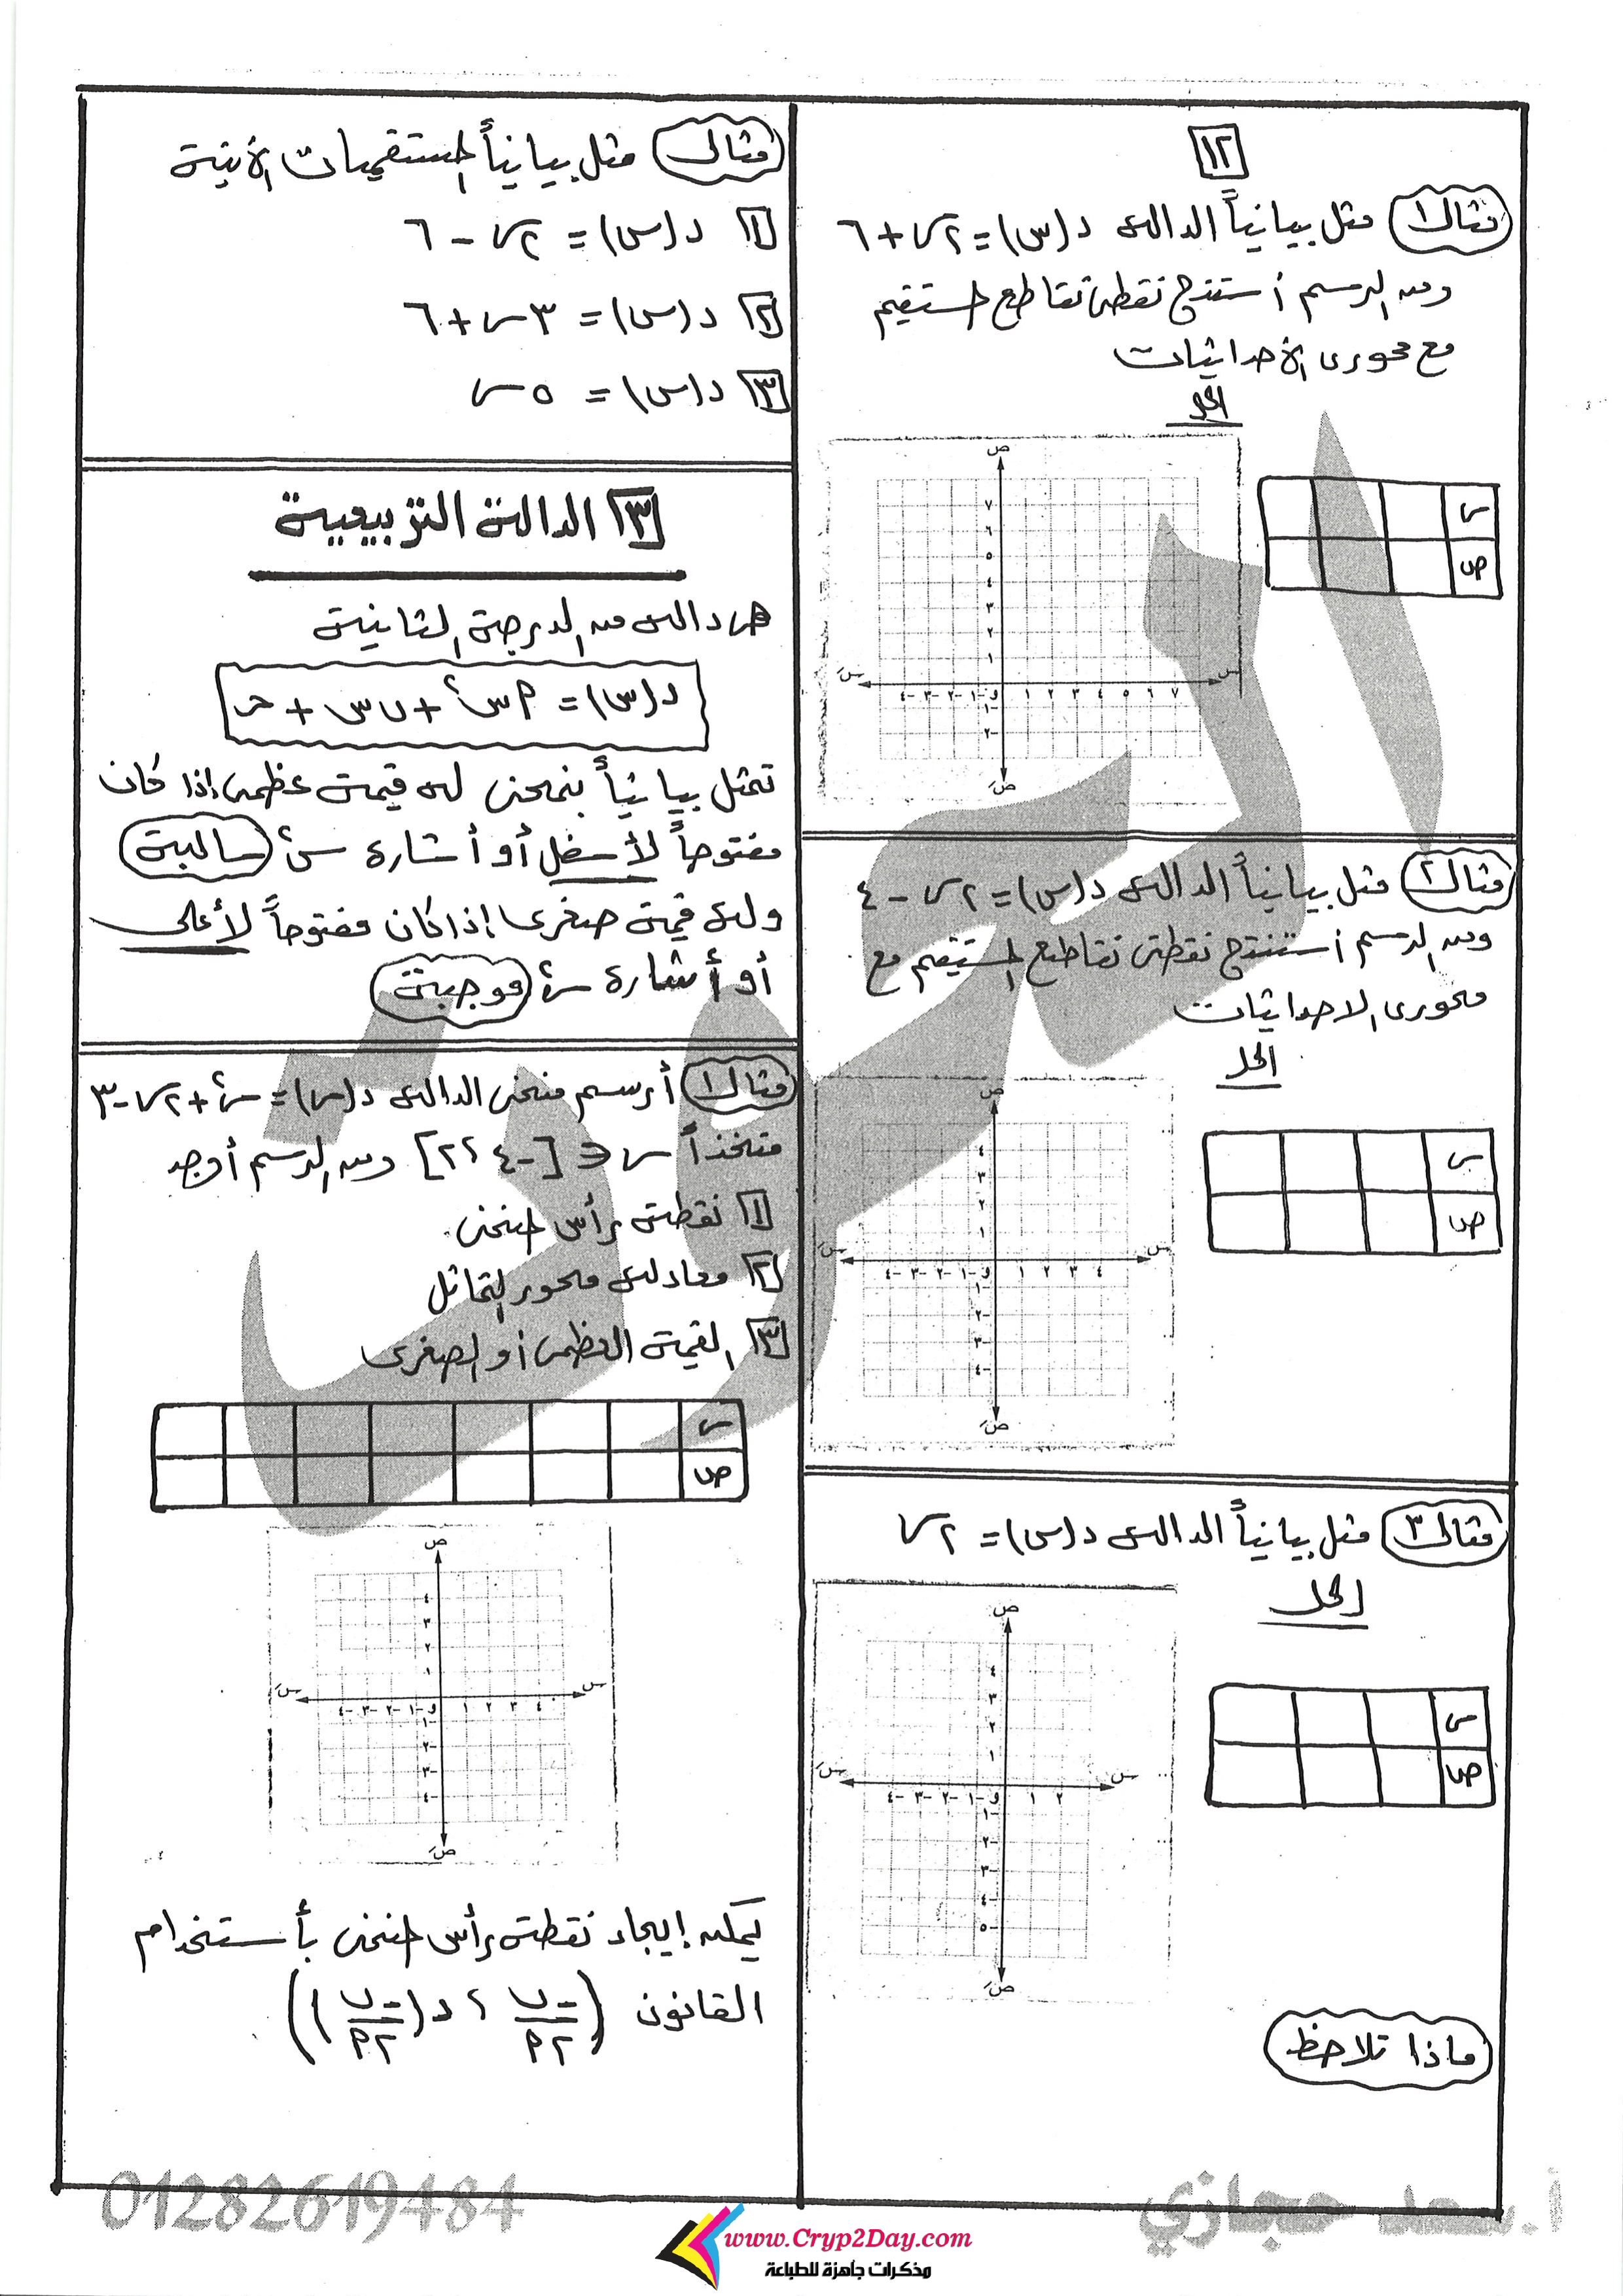 ١٢
مثال١ مثل بيانياً الدالة د(س)= ٢س+٦
ومن الرسم أستنتج نقطتى تقاطع المستقيم
مع محورى الأحداثيات
الحل
س
ص
ص
٧
٦
٥
٤
٣
٢
١
سَ ٤- ٣- ٢- ١- و ١ ٢ ٣ ٤ ٥ ٦ ٧ س
١-
٢-
صَ
مثال٢ مثل بيانياً الدالة د(س)= ٢س - ٤
ومن الرسم أستنتج نقطتى تقاطع المستقيم مع
محورى الاحداثيات
الحل
س
ص
ص
٤
٣
٢
١
سَ ٤- ٣- ٢- ١- و ١ ٢ ٣ ٤ س
١-
٢-
٣-
٤-
صَ
مثال٣ مثل بيانياً الدالة د(س)= ٢س
الحل
س
ص
ص
٤
٣
٢
١
سَ ٤- ٣- ٢- ١- و ١ ٢ س
١-
٢-
٣-
٤-
٥-
صَ
ماذا تلاحظ
مثال مثل بيانياً المستقيمات الأتية
١ د(س)= ٢س - ٦
٢ د(س)= ٣س+٦
٣ د(س)= ٥س
٣ الدالة التربيعية
هى دالة من الدرجة الثانية
د(س)= ٩س٢ + ب س + حـ
تمثل بيانياً بمنحنى له قيمة عظمى إذا كان
مفتوحاً لأسفل أو أشارة س٢ سالبة
وله قيمة صغرى إذا كان مفتوحاً لأعلى
أو أشارة س٢ موجبة
مثال١ أرسم منحنى الدالة د(س)= س٢+٢س-٣
متخذاً س ∈ [-٤ ، ٢] ومن الرسم أوجد
١ نقطة رأس المنحنى
٢ معادلة محور التماثل
٣ القيمة العظمى أو الصغرى
س
ص
ص
٤
٣
٢
١
سَ ٤- ٣- ٢- ١- و ١ ٢ ٣ ٤ س
١-
٢-
٣-
٤-
صَ
يمكن إيجاد نقطة رأس المنحنى بأستخدام
القانون (-ب/٢أ ، د(-ب/٢أ))
أ.سعد حجازي
01282619484
www.Cryp2Day.com
مذكرات جاهزة للطباعة